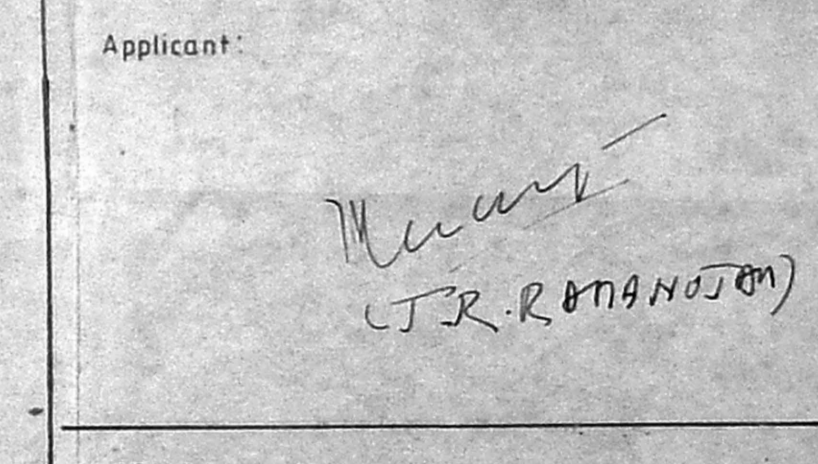 Applicant:
(J.R. RAMANUJAM)